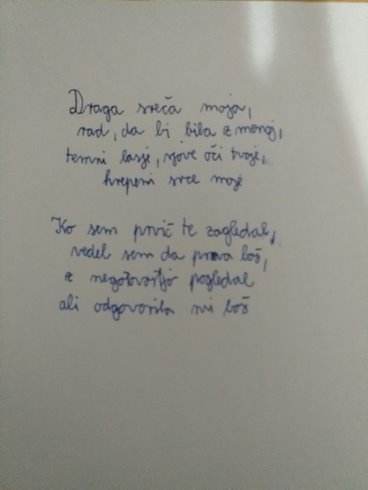 Draga sreča moja,
rad, da bi bila z menoj,
temni lasje, rjave oči tvoje,
hrepeni srce moje
Ko sem prvič te zagledal,
vedel sem da prava boš,
z negotovostjo pogledal
ali odgovorila mi boš